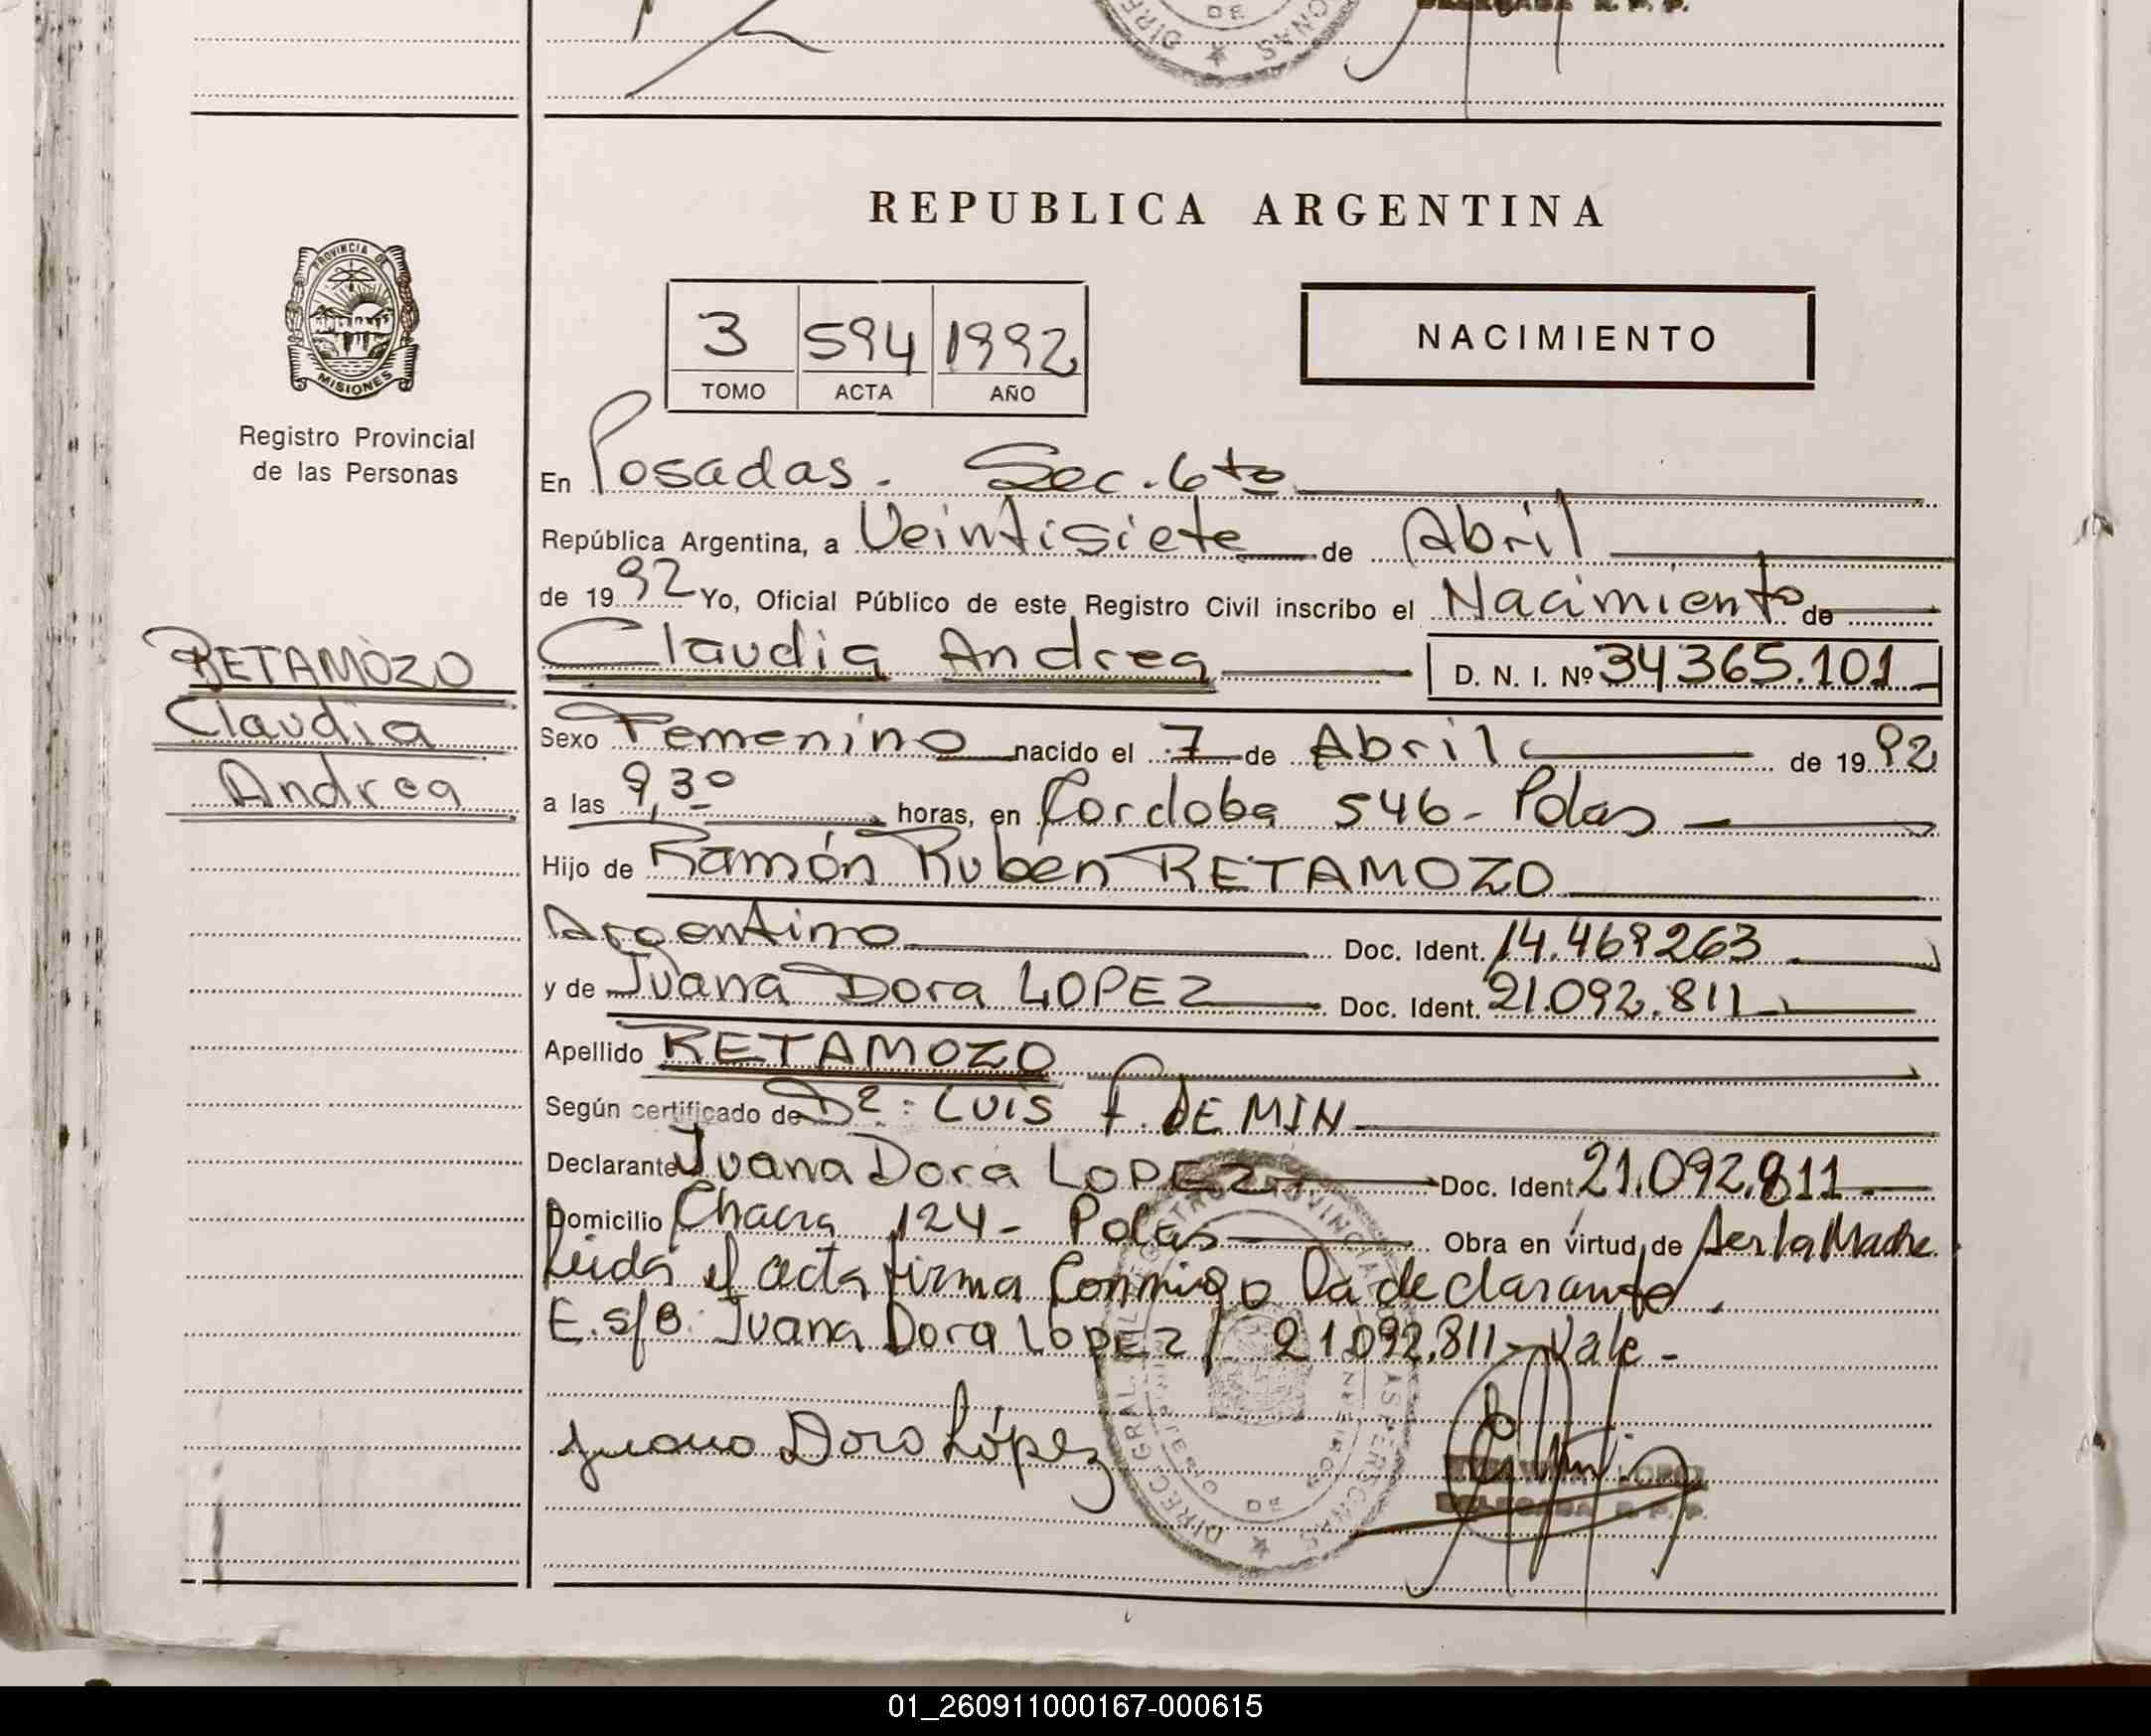 DIRE
DE
CNAS
DELEGADA R. P. P.
REPUBLICA ARGENTINA
PROVINCIA DE
MISIONES
Registro Provincial
de las Personas
3 594 1992
TOMO ACTA AÑO
NACIMIENTO
En Posadas. Sec. 6ta
República Argentina, a Veintisiete de Abril
de 1992 Yo, Oficial Público de este Registro Civil inscribo el Nacimiento de
RETAMOZO
Claudia
Andrea
Claudia Andrea D. N. I. Nº 34365.101
Sexo Femenino nacido el 7 de Abril de 1992
a las 9,30 horas, en Cordoba 546 - Pdas
Hijo de Ramón Rubén RETAMOZO
Argentino Doc. Ident. 14.469263
y de Juana Dora LOPEZ Doc. Ident. 21.092.811
Apellido RETAMOZO
Según certificado de Luis F. DEMIN
Declarante Juana Dora LOPEZ Doc. Ident. 21.092.811
Domicilio Chacra 124 - Pdas Obra en virtud de Ser la Madre
Leida el acta firma Conmigo la declarante.
E. s/B: Juana Dora LOPEZ / 21.092.811 - Vale -
Juana Dora López
DELEGADA R. P. P.
01_260911000167-000615